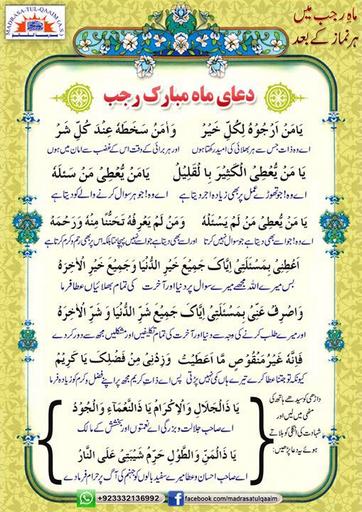 MADRASA-TUL-QAAIM (A.S)
ماہِ رجب میں
ہر نماز کے بعد
دعای ماہ مبارک رجب
يَامَنْ اَرْجُوْهُ لِكُلِّ خَيْرٍ وَ اٰمَنُ سَخَطَهُ عِنْدَ كُلِّ شَرٍّ
اے وہ ذات جس سے ہر بھلائی کی امید رکھتا ہوں اور ہر برائی کے وقت اس کے غضب سے امان میں ہوں
يَا مَنْ يُّعْطِى الْكَثِيْرَ بِا لْقَلِيْلِ يَامَنْ يُّعْطِىْ مَنْ سَئَلَهُ
اے وہ! جو تھوڑے عمل پر بھی زیادہ اجر دیتا ہے اے وہ! جو ہر سوال کرنے والے کو دیتا ہے
يَا مَنْ يُّعْطِىْ مَنْ لَّمْ يَسْئَلْهُ وَمَنْ لَّمْ يَعْرِفْهُ تَحَنُّنًا مِنْهُ وَرَحْمَةً
اے وہ! جو اسے بھی دیتا ہے جو سوال نہیں کرتا اور اسے بھی دیتا ہے جو اسے نہیں پہچانتا
اَعْطِنِىْ بِمَسْئَلَتِىْ اِيَّاكَ جَمِيْعَ خَيْرِ الدُّنْيَا وَجَمِيْعَ خَيْرِ الْاٰخِرَةِ
میرے سوال پر دنیا اور آخرت کی تمام بھلائیاں عطا فرما
وَاصْرِفْ عَنِّىْ بِمَسْئَلَتِىْ اِيَّاكَ جَمِيْعَ شَرِّ الدُّنْيَا وَ شَرِّ الْاٰخِرَةِ
اور میرے طلب کرنے کی وجہ سے دنیا اور آخرت کی تمام تکلیفیں اور مشکلیں مجھ سے دور کردے
فَاِنَّهُ غَيْرُ مَنْقُوْصٍ مَّا اَعْطَيْتَ وَزِدْنِىْ مِنْ فَضْلِكَ يَا كَرِيْمُ
کیونکہ تو جتنا عطا کرے تیرے ہاں کمی نہیں پڑتی اے کریم مجھ پر اپنے فضل و کرم کو زیادہ فرما
داڑھی کو سیدھے ہاتھ کی
مٹھی میں لیں اور
شہادت کی انگلی کو ہلاتے
ہوئے یہ دعا پڑھیں:
يَا ذَاالْجَلَالِ وَالْاِكْرَامِ يَا ذَاالنَّعْمَآءِ وَالْجُوْدِ
اے صاحب جلالت و بزرگی اے نعمتوں اور بخشش کے مالک
يَا ذَاالْمَنِّ وَالطَّوْلِ حَرِّمْ شَيْبَتِىْ عَلَى النَّارِ
اے صاحب احسان و عطا میرے سفید بالوں کو جہنم کی آگ پر حرام فرما دے
+923332136992 facebook.com/madrasatulqaaim